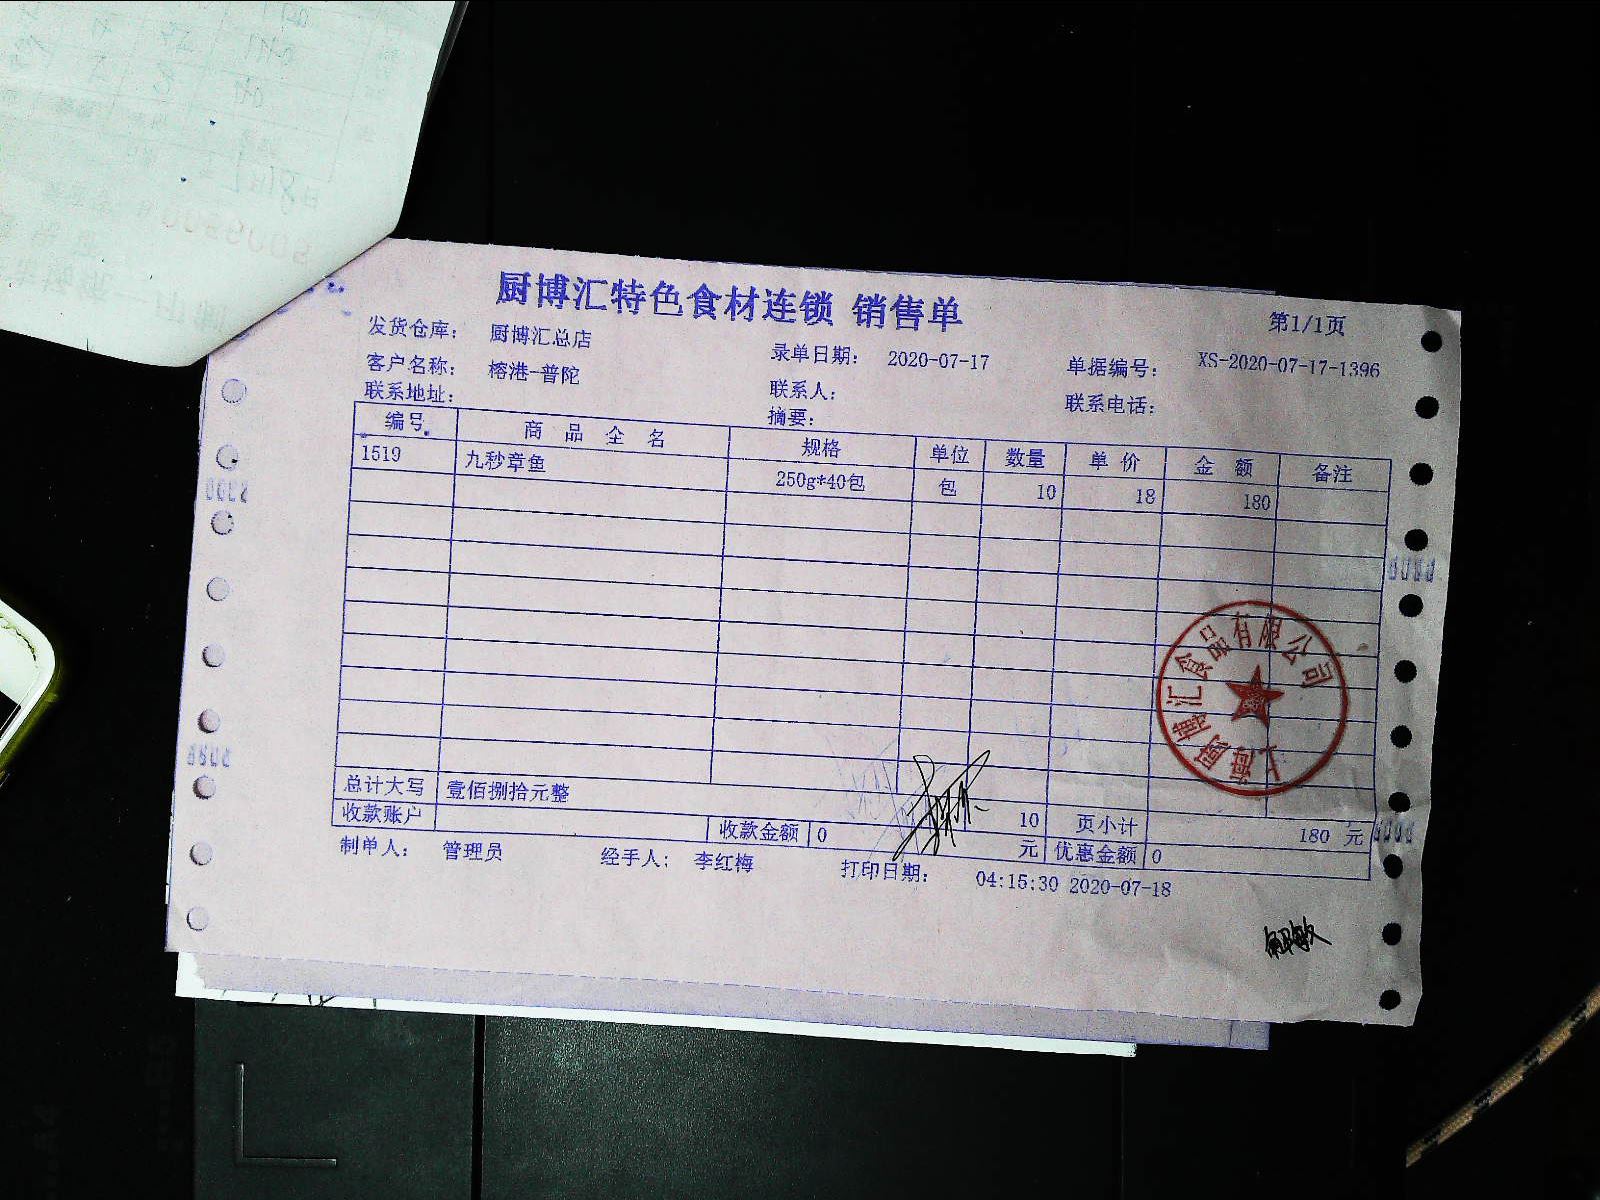 厨博汇特色食材连锁 销售单
第1/1页
发货仓库： 厨博汇总店
录单日期： 2020-07-17
单据编号： XS-2020-07-17-1396
客户名称： 榕港-普陀
联系人：
联系电话：
联系地址：
摘要：
编号 商品全名 规格 单位 数量 单价 金额 备注
1519 九秒章鱼 250g*40包 包 10 18 180
总计大写 壹佰捌拾元整 10 页小计 180 元
收款账户 收款金额 0 元 优惠金额 0
制单人： 管理员 经手人： 李红梅 打印日期： 04:15:30 2020-07-18
上海厨博汇食品有限公司